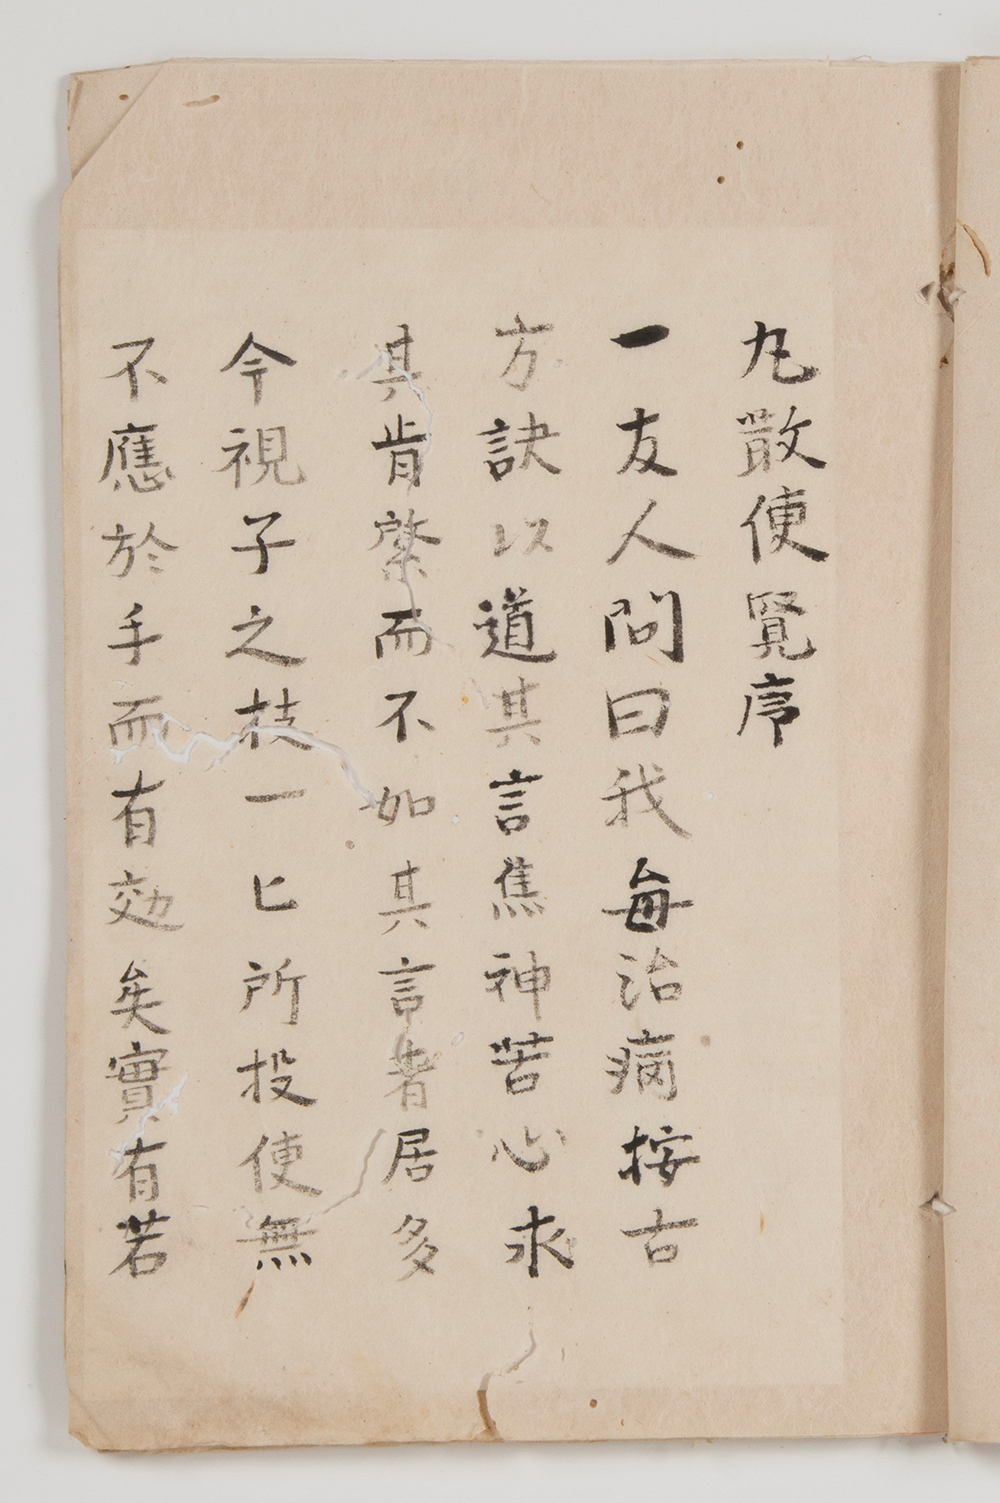 丸散使覧序
一友人問曰我每治病按古
方訣以道其言焦神苦心求
其肯綮而不如其言者居多
今視子之技一匕所投使無
不應於手而有効矣實有若